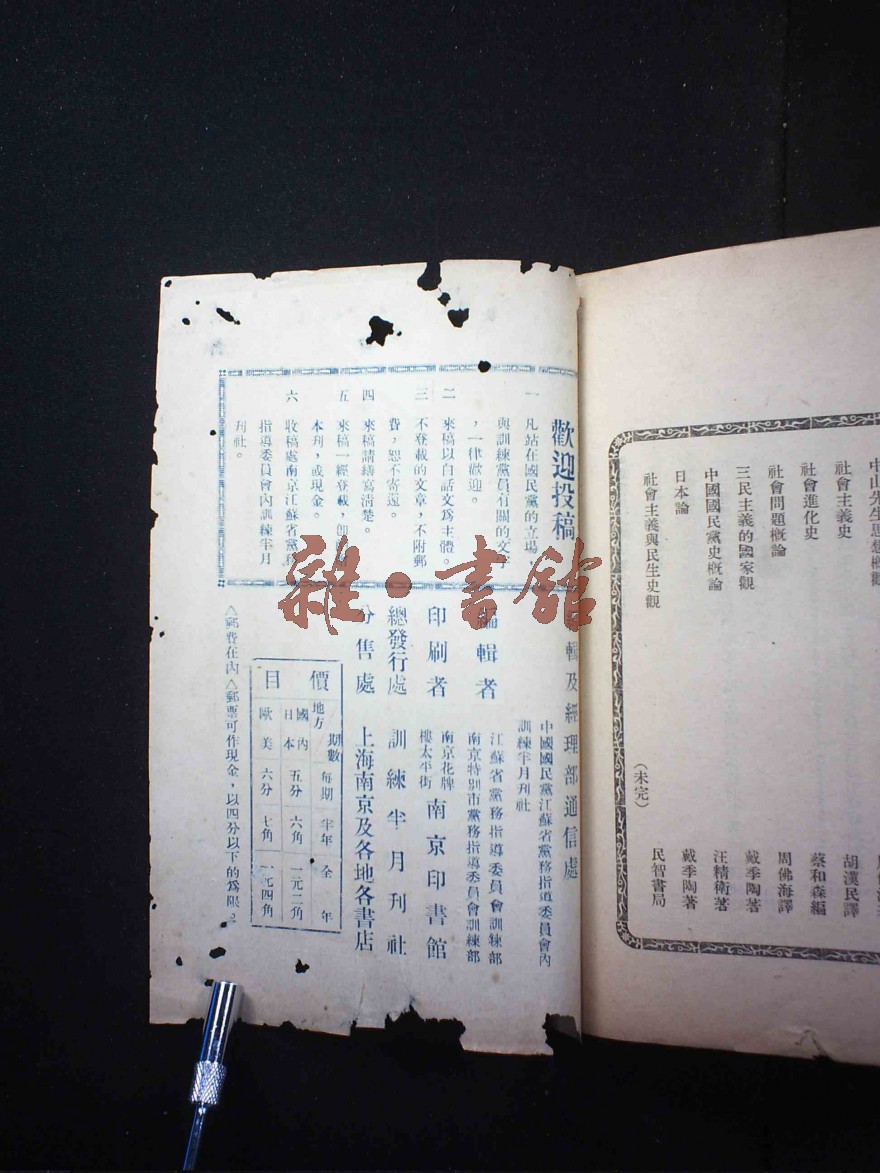 中山先生思想概觀
社會主義史 胡漢民譯
社會進化史 蔡和森編
社會問題概論 周佛海譯
三民主義的國家觀 戴季陶著
中國國民黨史概論 汪精衛著
日本論 戴季陶著
社會主義與民生史觀 民智書局
(未完)
歡迎投稿
一 凡站在國民黨的立場,
與訓練黨員有關的文
,一律歡迎。
二 來稿以白話文爲主體。
三 不登載的文章,不附郵
費,恕不寄還。
四 來稿請繕寫清楚。
五 來稿一經登載,卽
本刊,或現金。
六 收稿處南京江蘇省黨務
指導委員會內訓練半月
刊社。
輯及經理部通信處
中國國民黨江蘇省黨務指導委員會內
訓練半月刊社
編輯者 江蘇省黨務指導委員會訓練部
南京特別市黨務指導委員會訓練部
印刷者 南京花牌
樓太平街 南京印書館
總發行處 訓練半月刊社
分售處 上海南京及各地各書店
價目
期數 每期 半年 全年
地方
國內 日本 五分 六角 一元二角
歐美 六分 七角 一元四角
△郵費在內 △郵票可作現金,以四分以下的爲限。
雜·書館